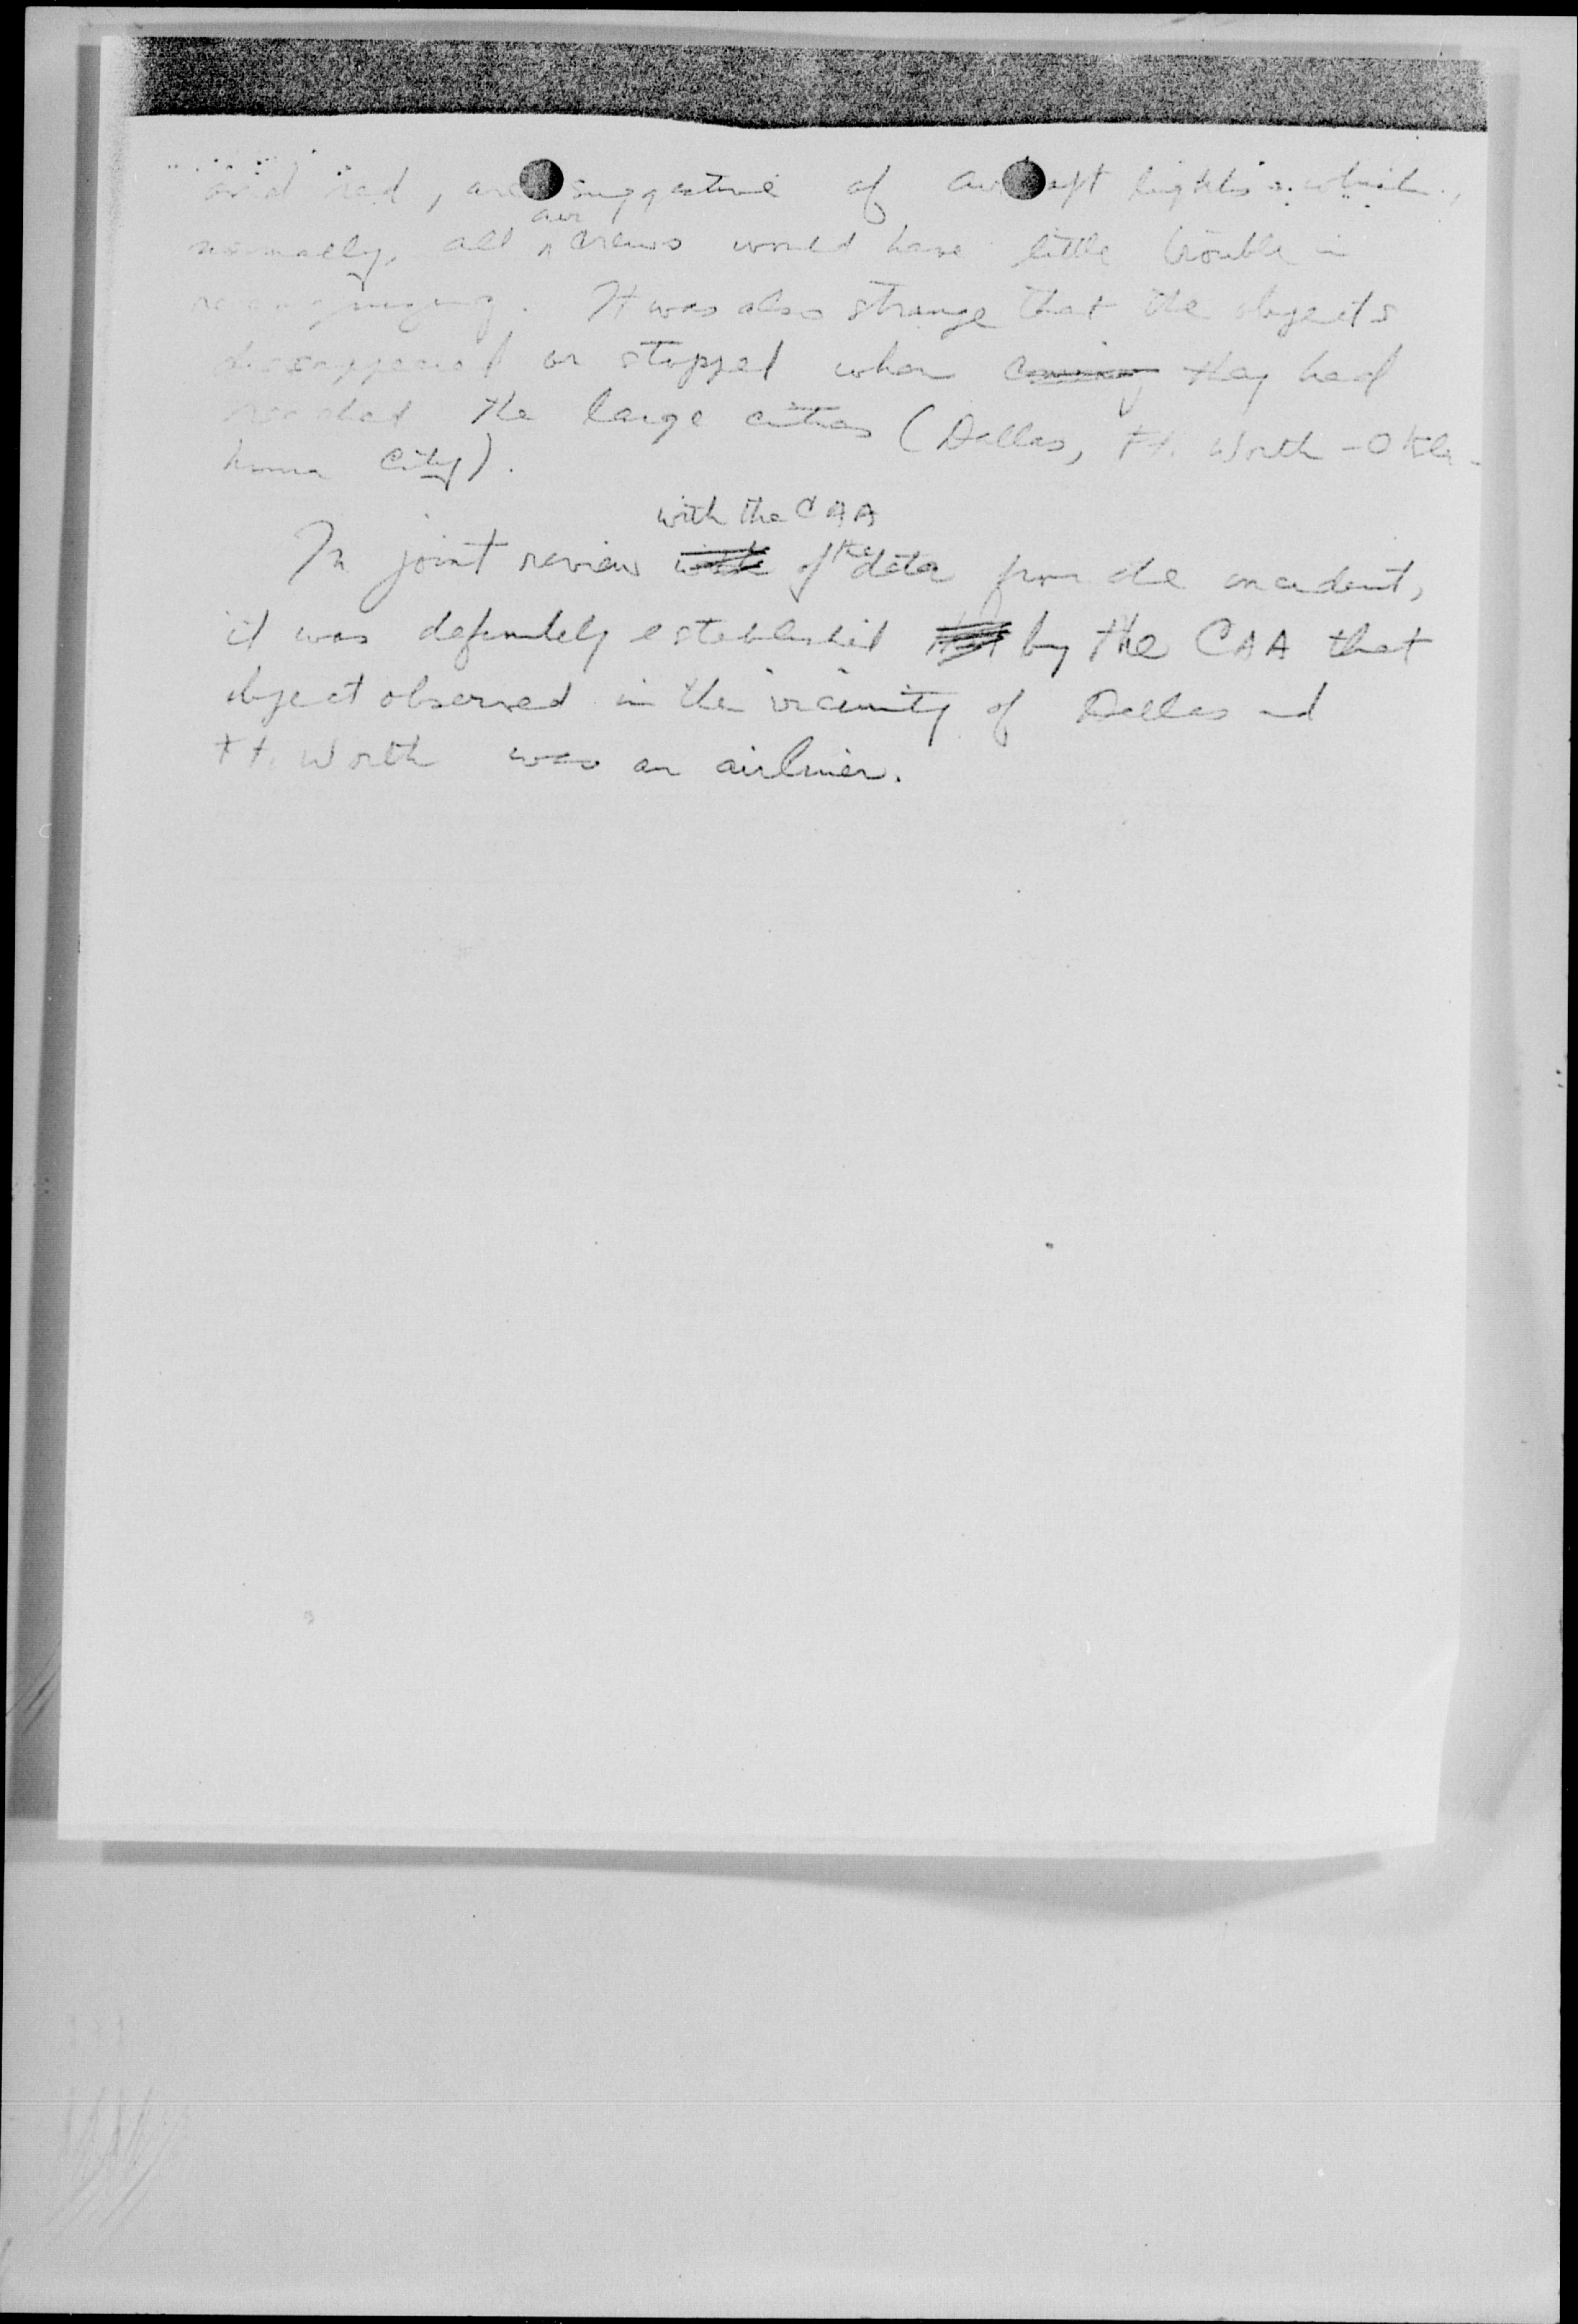 and red, are suggestive of aircraft lights which,
normally, all air crews would have little trouble in
recognizing. It was also strange that the objects
disappeared or stopped when coming they had
reached the large cities (Dallas, Ft. Worth - Okla-
homa City).
with the CAA
In joint review with of the data from the incident,
it was definitely established that by the CAA that
object observed in the vicinity of Dallas and
Ft. Worth was an airliner.